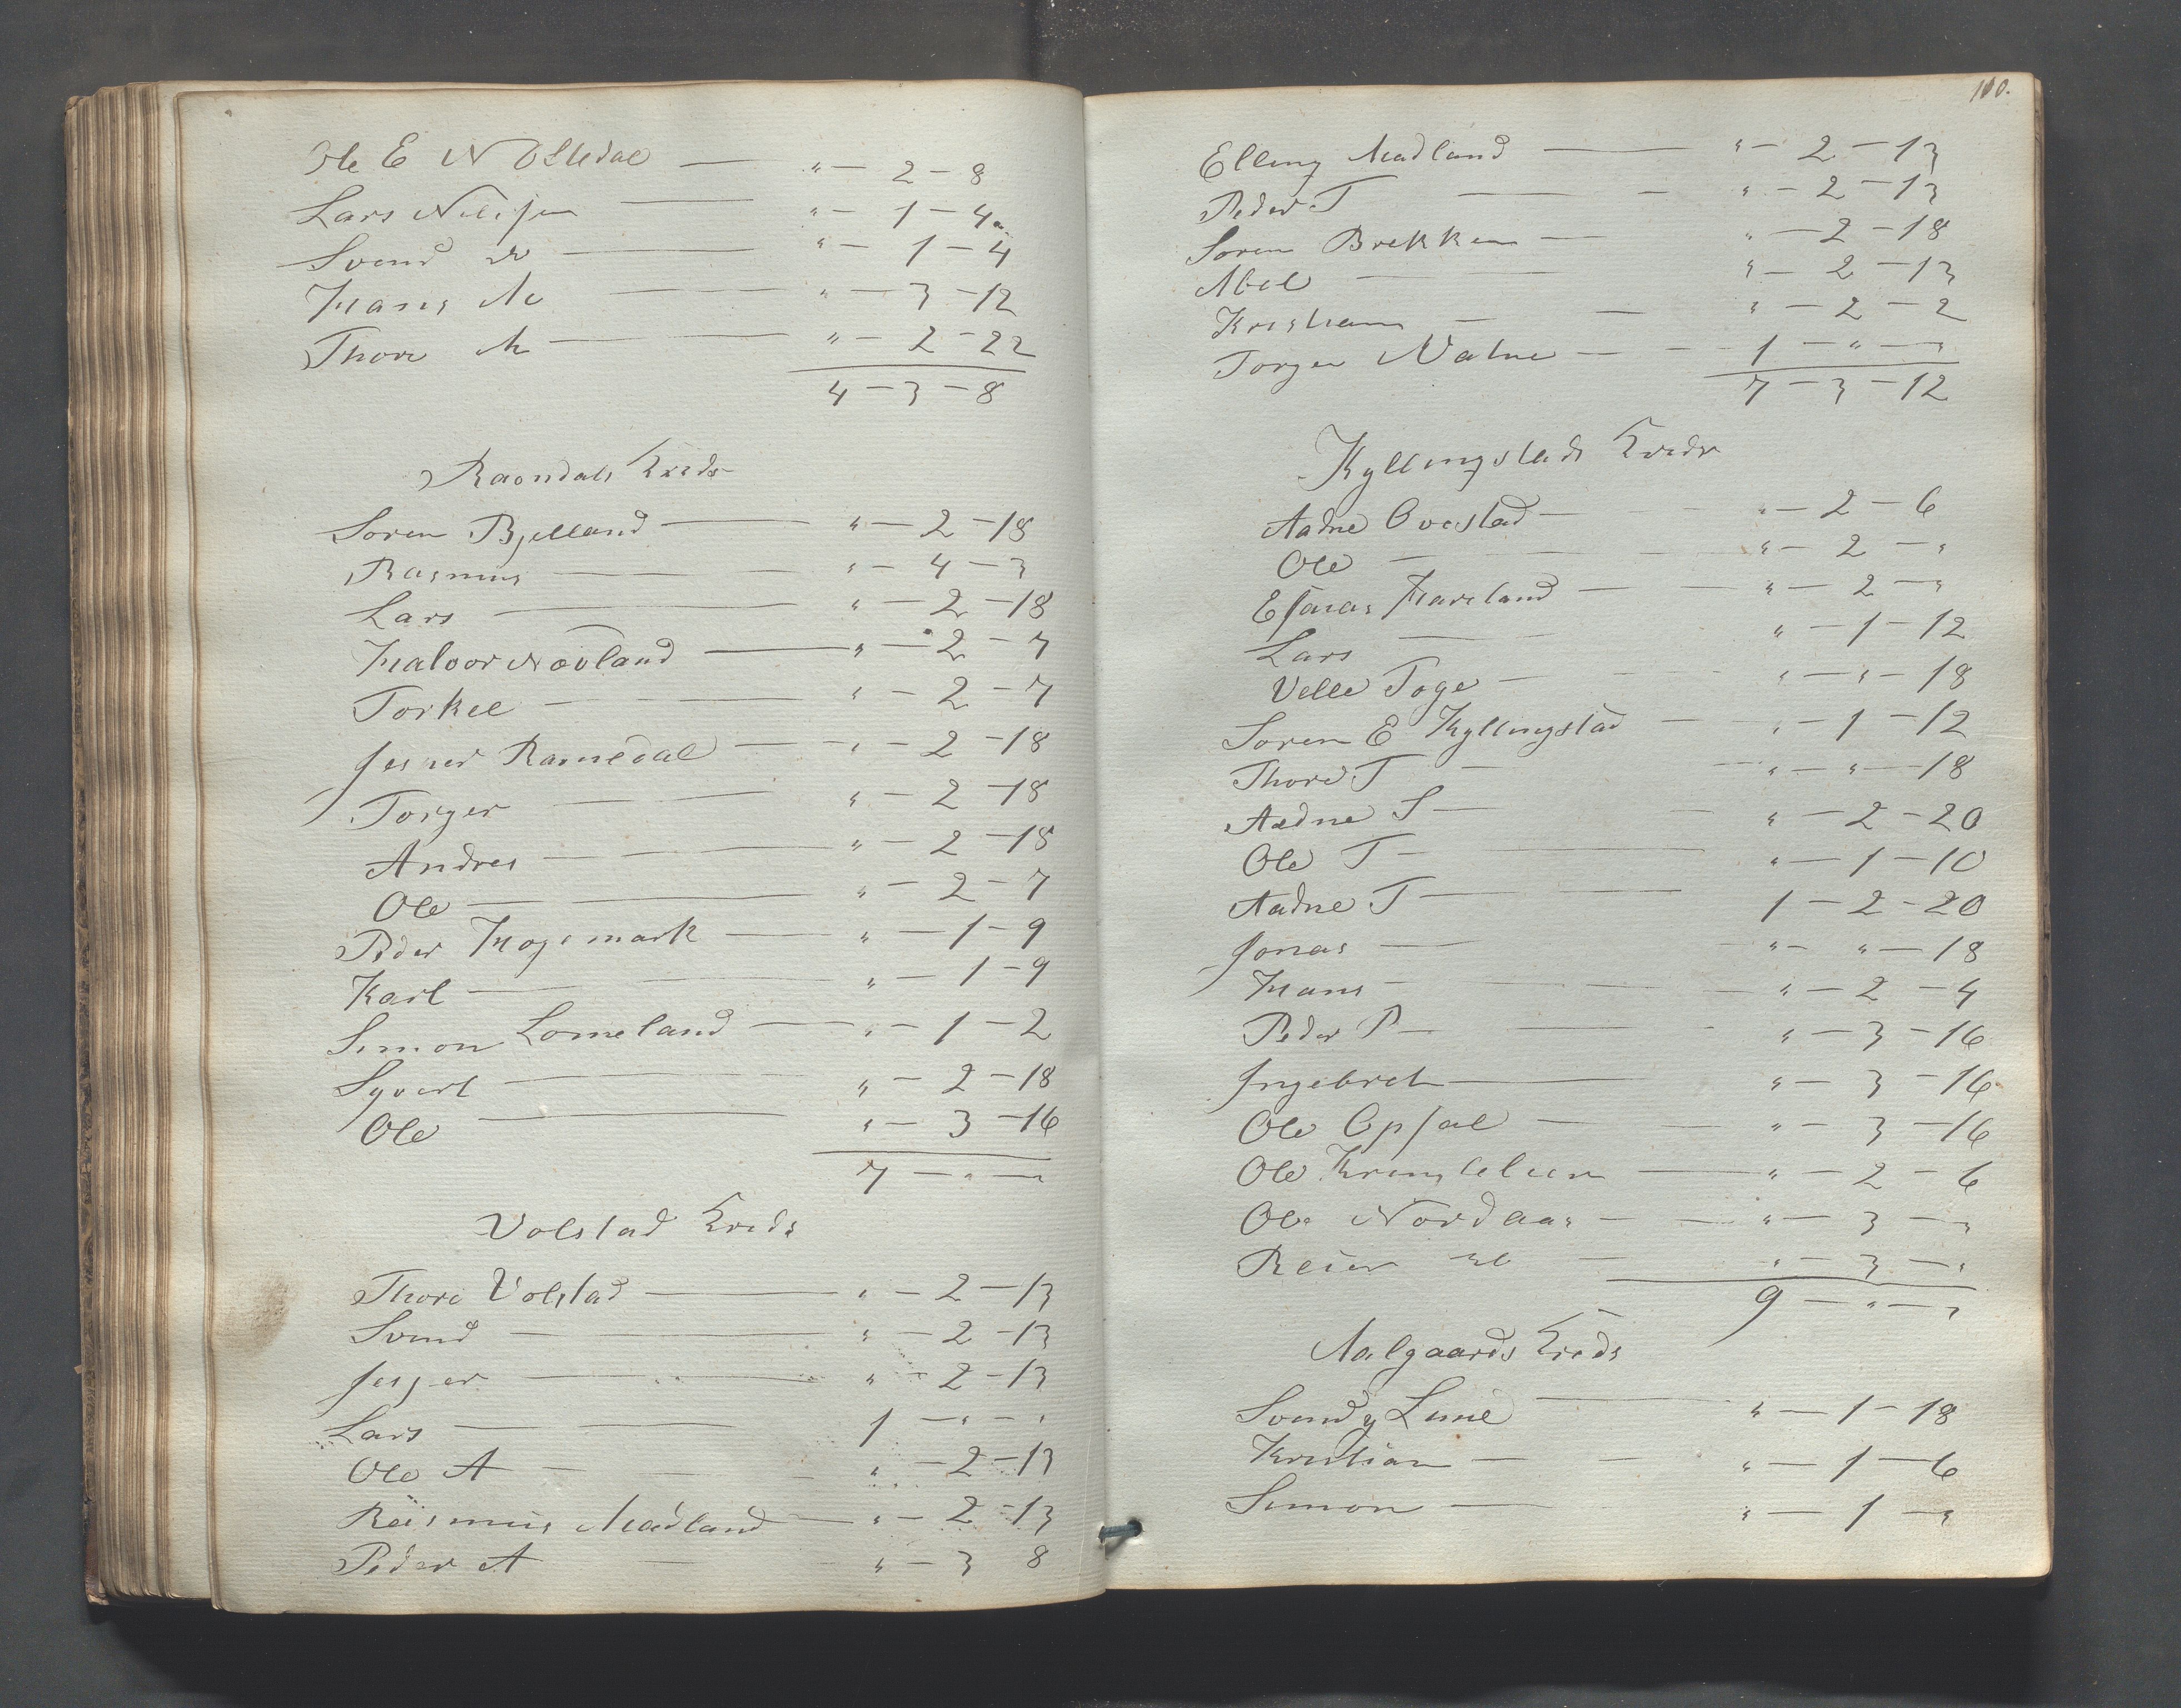 Ole E N Oltedal — " — 2 — 8
Lars Nilssen — " — 1 — 4
Svend do — " — 1 — 4
Hans do — " — 3 — 12
Thore do — " — 2 — 22
4 — 3 — 8
Ravndals Kreds
Soren Bjelland — " — 2 — 18
Rasmus — " — 4 — 3
Lars — " — 2 — 18
Halvor Nævland — " — 2 — 7
Torkel — " — 2 — 7
Jesper Ramsdal — " — 2 — 18
Torger — " — 2 — 18
Andres — " — 2 — 18
Ole — " — 2 — 7
Peder Hogemark — " — 1 — 9
Karl — " — 1 — 9
Simon Lomeland — " — 1 — 2
Syvert — " — 2 — 18
Ole — " — 3 — 16
7 — " — "
Volstad Kreds
Thore Volstad — " — 2 — 13
Svend — " — 2 — 13
Jesper — " — 2 — 13
Lars — 1 — " — "
Ole A — " — 2 — 13
Rasmus Madland — " — 2 — 13
Peder A — " — 3 8
110.
Elling Madland — " — 2 — 13
Peder T — " — 2 — 13
Soren Brekken — " — 2 — 18
Abel — " — 2 — 13
Kristian — " — 2 — 2
Torger Natne — 1 — " — "
7 — 3 — 12
Kyllingstads Kreds
Aadne Overstad — " — 2 — 6
Ole — " — 2 — "
Esaias Hareland — " — 2 — "
Lars — " — 1 — 12
Velle Toge — " — " — 18
Soren E Kyllingstad — " — 1 — 12
Thore T — " — " — 18
Aadne S — " — 2 — 20
Ole T — " — 1 — 10
Aadne T — 1 — 2 — 20
Jonas — " — " — 18
Hans — " — 2 — 4
Peder P — " — 3 — 16
Ingebret — " — 3 — 16
Ole Opsal — " — 3 — 16
Ole — " — 2 — 6
Ole Nordaas — " — 3 — "
Reier do — " — 3 — "
9 — " — "
Aalgaards Kreds
Svend Lime — " — 1 — 18
Kristian — " — 1 — 6
Simon — " — 1 — "